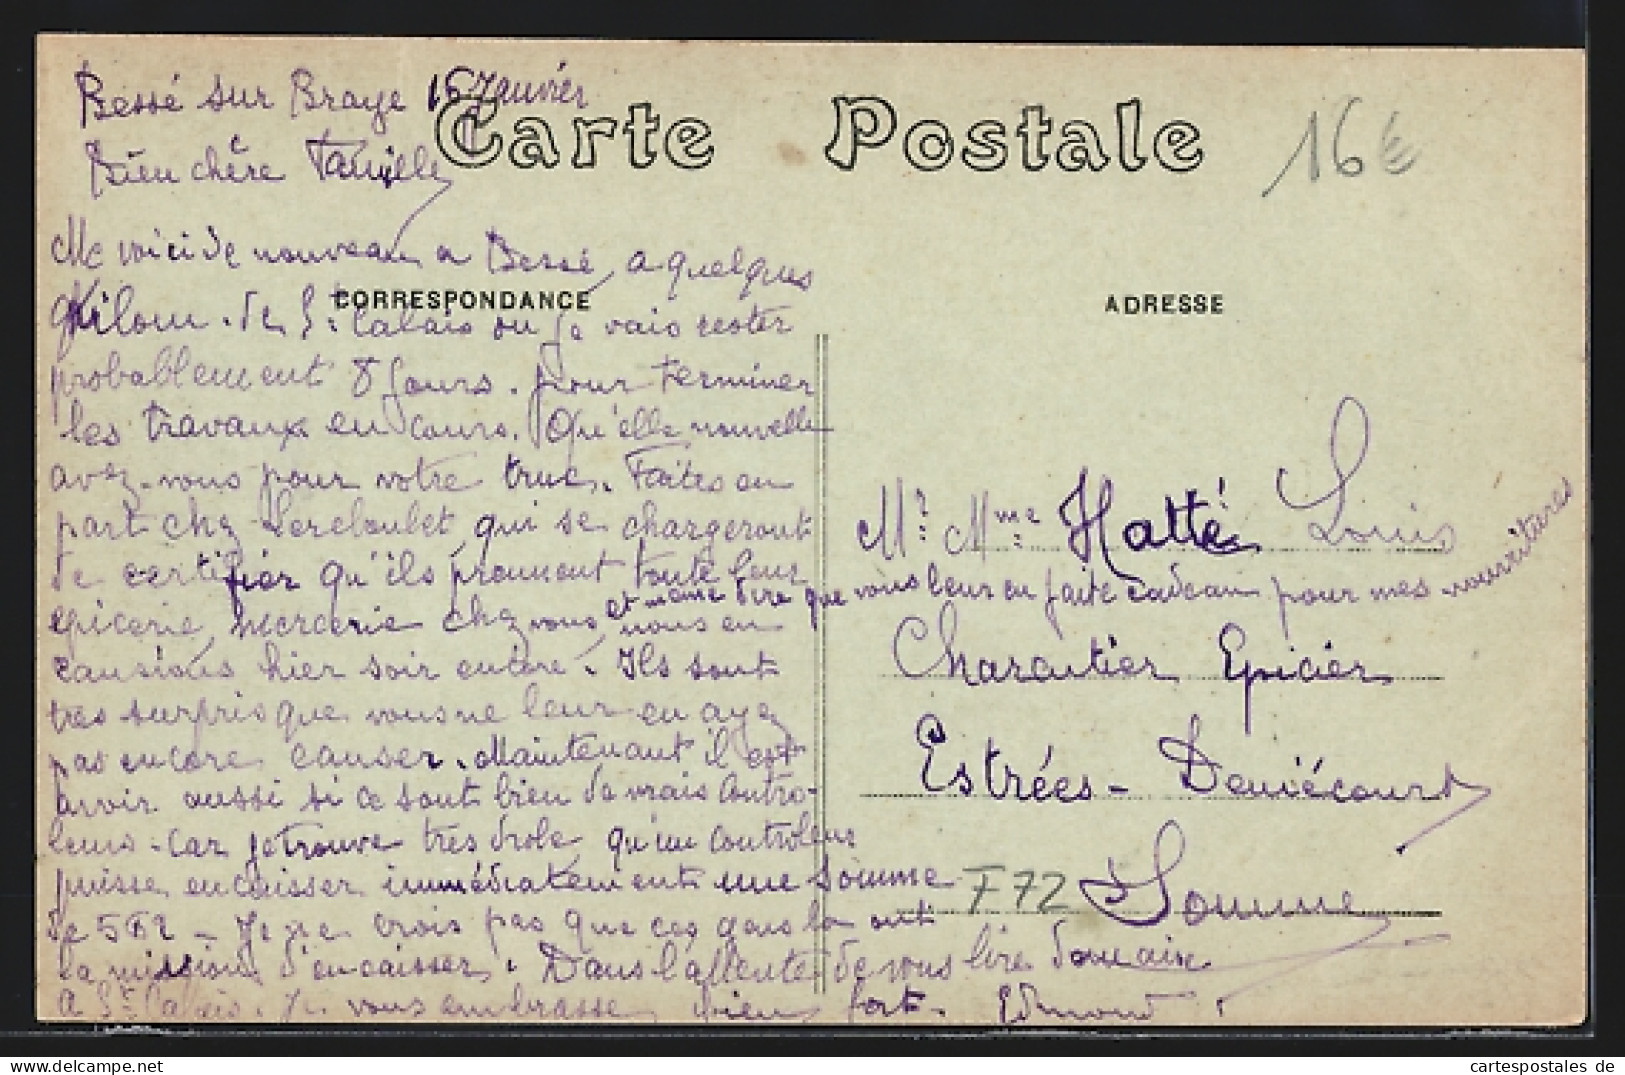 Carte Postale
16 €
Bessé sur Braye 16 Janvier
Bien chère Famille
Me voici de nouveau a Bessé, a quelques
CORRESPONDANCE
ADRESSE
Kilom. de St Calais ou je vais rester
probablement 8 jours. pour terminer
les travaux en cours. Qu'elle nouvelle
avez-vous pour votre truc. Faites en
part chez qui se chargeront
de certifier qu'ils prennent toute leur
epicerie, mercerie chez vous nous en
et même dire que vous leur en faite cadeau pour mes nourritures
causions hier soir encore. Ils sont
tres surpris que vous ne leur en ayez
pas encore causer. Maintenant il est
avoir aussi si ce sont bien de vrais Contro-
leurs. Car je trouve tres drole qu'un controleur
puisse encaisser immédiatement une somme
de 562 - Je ne crois pas que ces gens la ont
la mission d'encaisser. Dans l'attente de vous lire demain
a St Calais. Je vous embrasse bien fort. Edmond
Mr Mme Hatté Louis
Charcutier Epicier
Estrées - Deniécourt
F72
Somme
cartespostales de